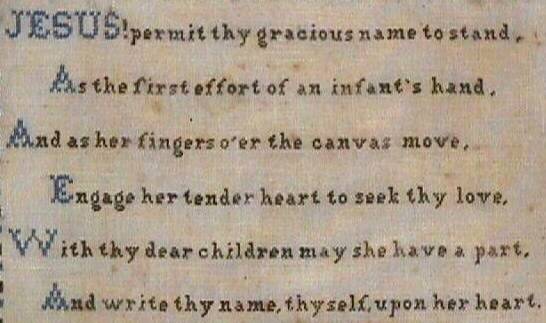 JESUS! permit thy gracious name to stand,
As the first effort of an infant's hand,
And as her fingers o'er the canvas move,
Engage her tender heart to seek thy love,
With thy dear children may she have a part,
And write thy name, thyself, upon her heart.